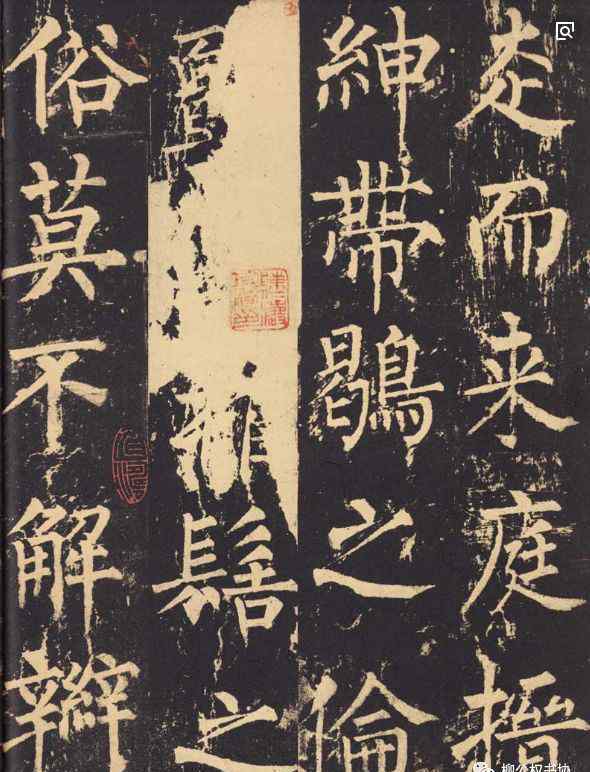 走而来庭搢
紳帶鶡之倫
椎髻之
俗莫不解辮
柳公权书协